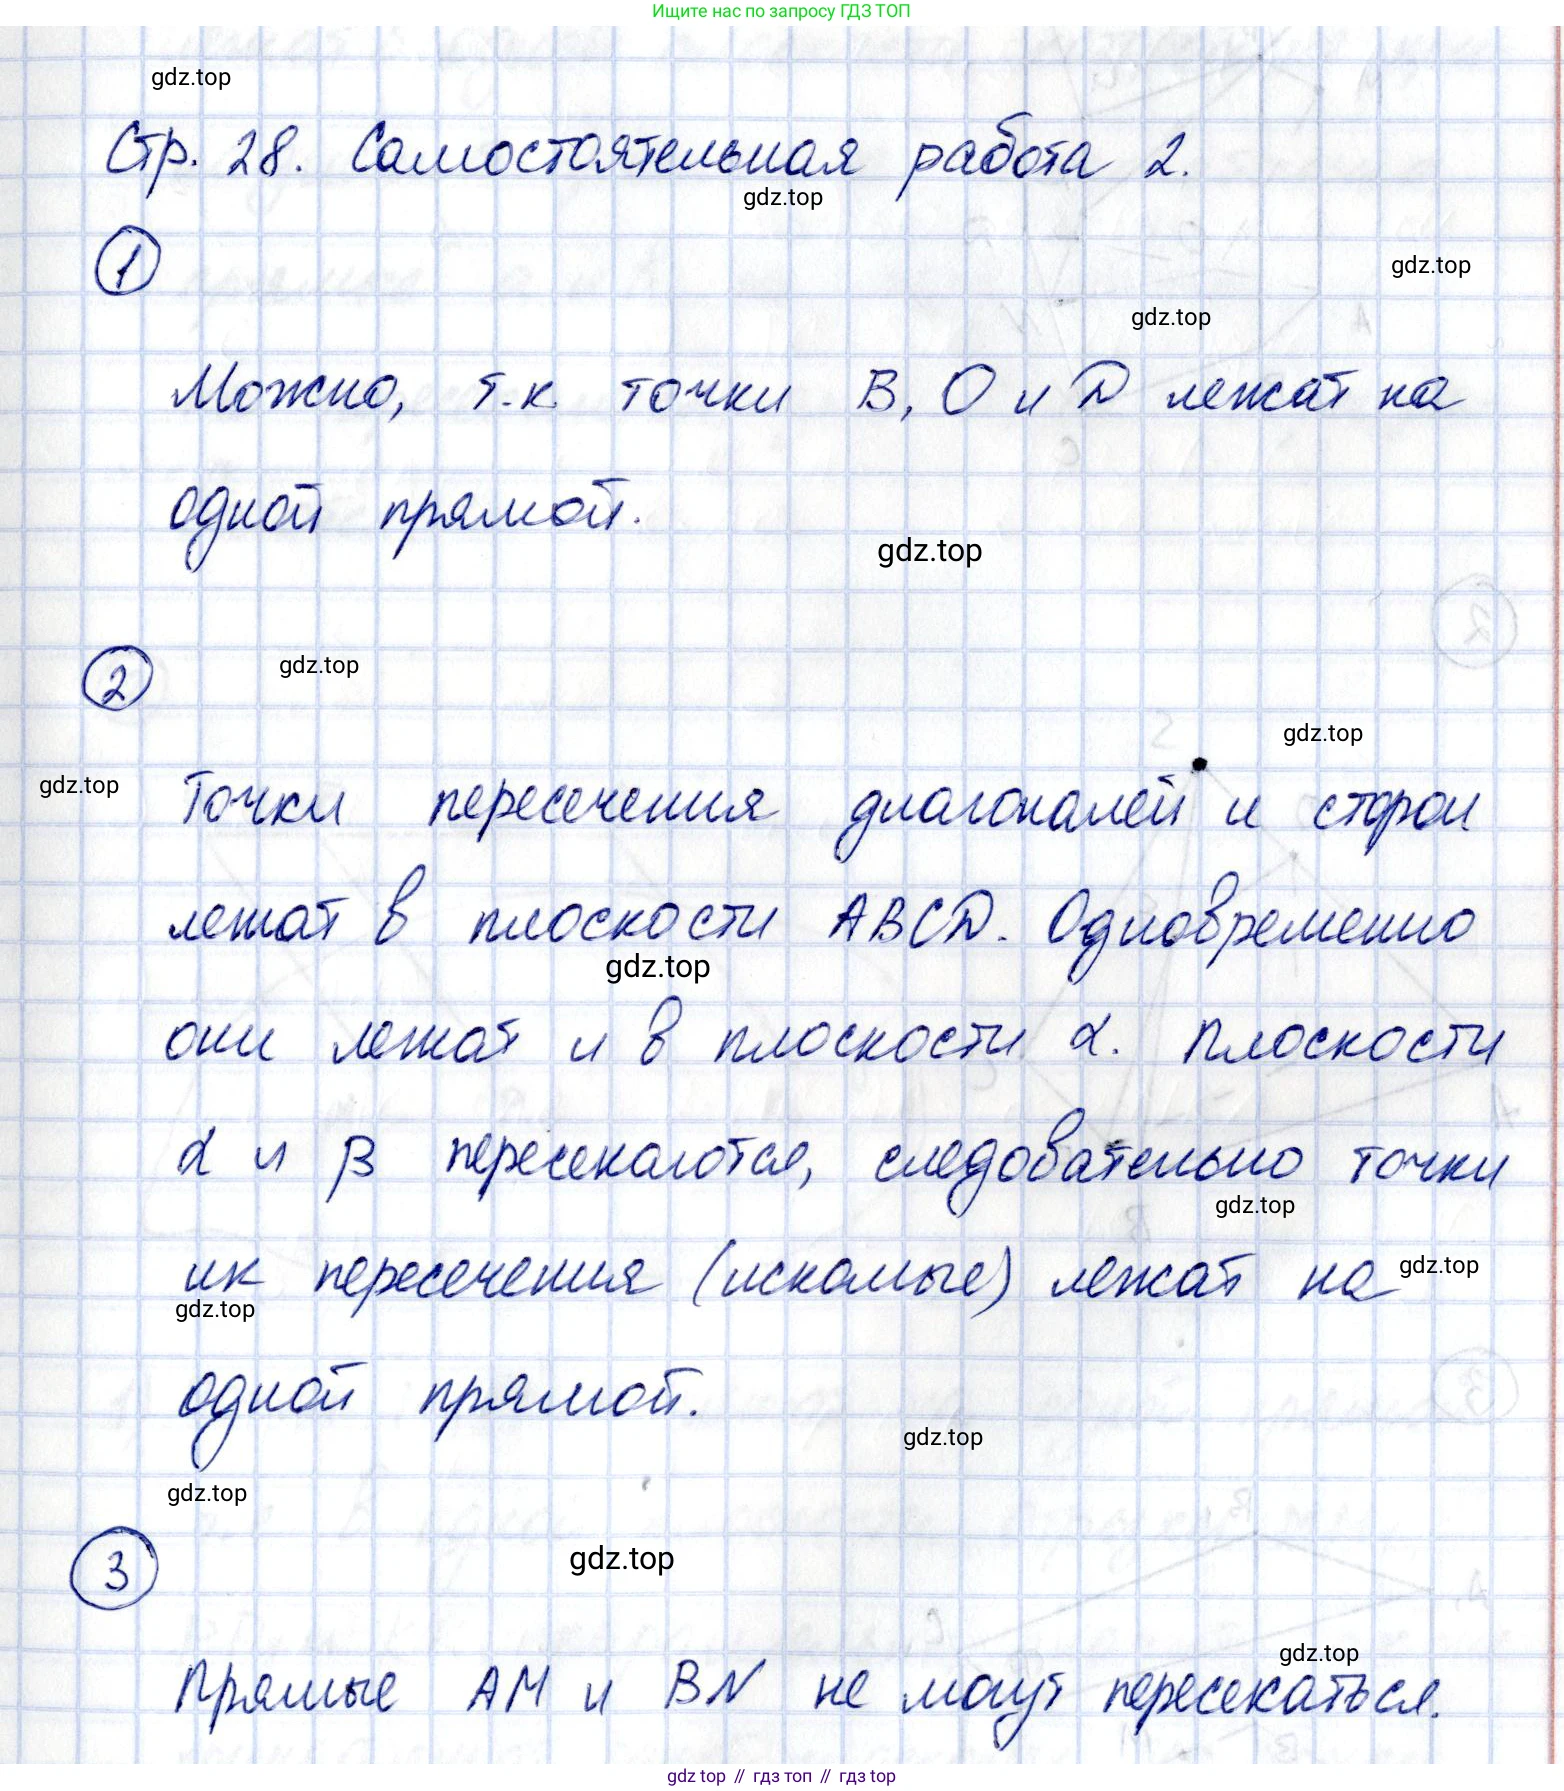 Ищите нас по запросу ГДЗ ТОП
gdz.top
Стр. 28. Самостоятельная работа 2.
gdz.top
1
gdz.top
gdz.top
Можно, т.к. точки B, O и D лежат на
одной прямой.
gdz.top
2
gdz.top
gdz.top
gdz.top
Точки пересечения диагоналей и сторон
лежат в плоскости ABCD. Одновременно
gdz.top
они лежат и в плоскости α. Плоскости
α и β пересекаются, следовательно точки
gdz.top
их пересечения (искомые) лежат на
gdz.top
gdz.top
одной прямой.
gdz.top
gdz.top
3
gdz.top
gdz.top
Прямые AM и BN не могут пересекаться.
gdz.top // гдз топ // гдз top